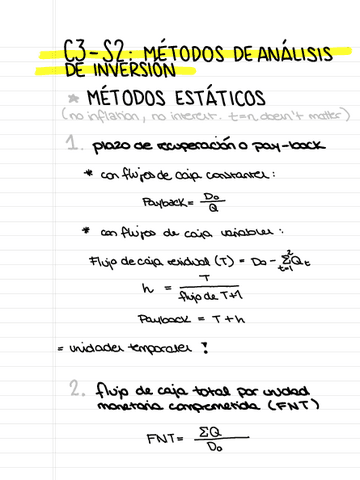 C3-S2: MÉTODOS DE ANÁLISIS
DE INVERSIÓN
* MÉTODOS ESTÁTICOS
(no inflation, no interest. t=n doesn't matter)
1. plazo de recuperación o pay-back
* con flujos de caja constantes:
Payback = Do/Q
* con flujos de caja variables:
Flujo de caja residual (T) = Do - Σ²t=1 Qt
h = T / flujo de T+1
Payback = T + h
= unidades temporales !
2. flujo de caja total por unidad
monetaria comprometida (FNT)
FNT = ΣQ / Do